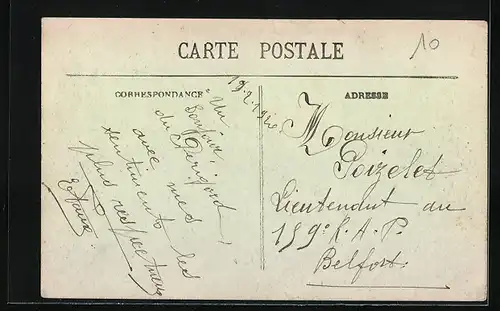 CARTE POSTALE
10
CORRESPONDANCE
ADRESSE
19.2.1920
Un
bonjour
du Périgord,
avec mes
sentiments les
plus respectueux
Monsieur
Poizelet
Lieutenant au
159e R.A.P.
Belfort